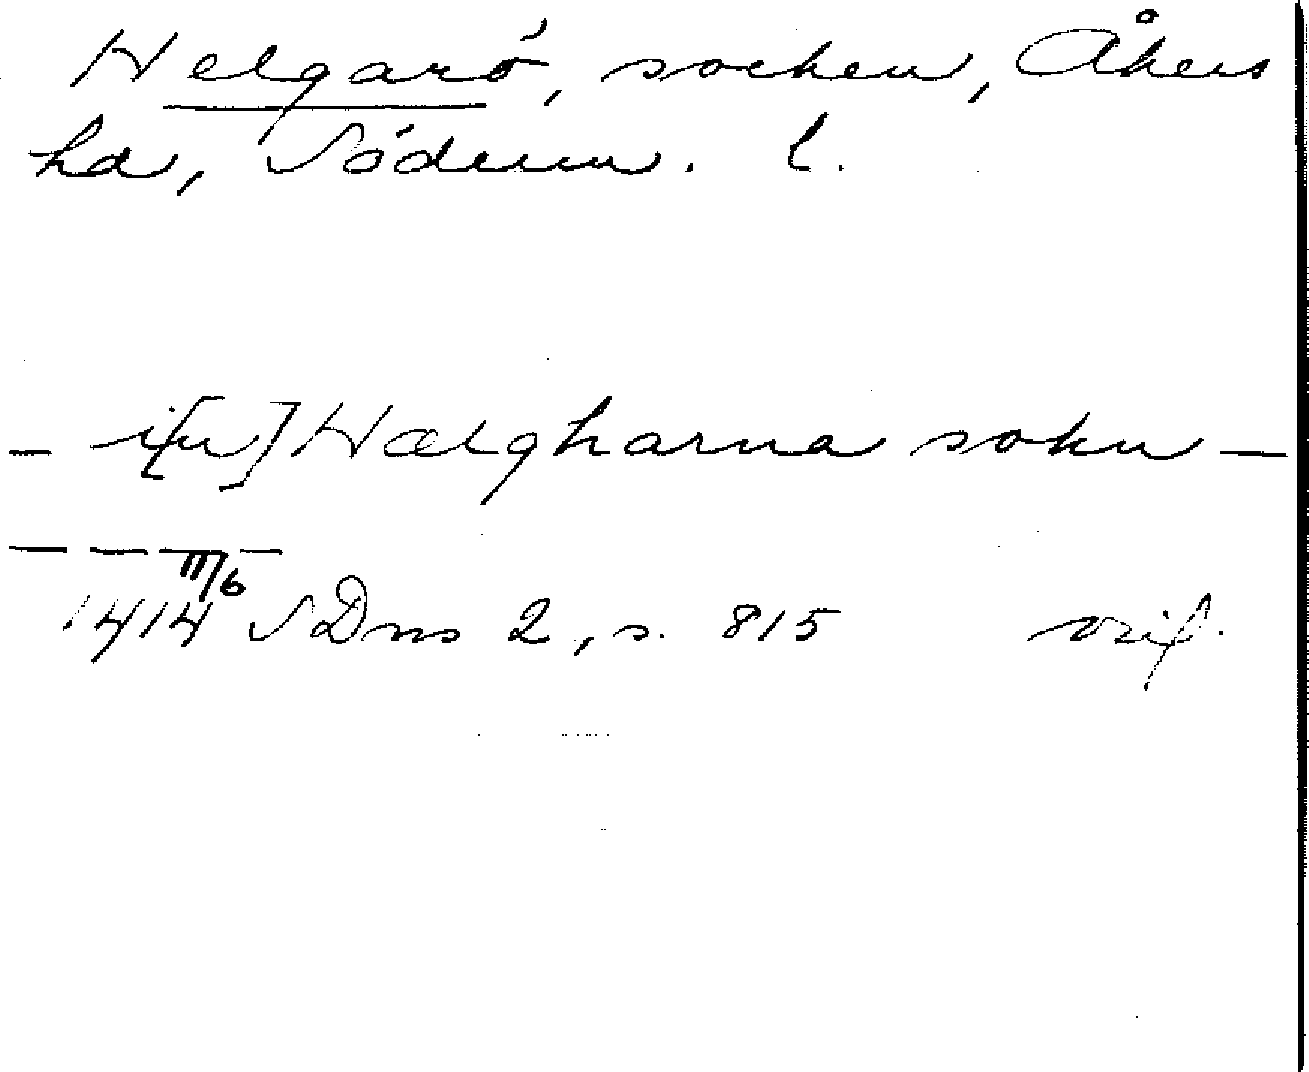 Helgarö, socken, Åkers
hd, Söderm. l.
– i[n] Hælgharna sokn –
– – – –
11/6
1414 SDns 2, s. 815 orig.